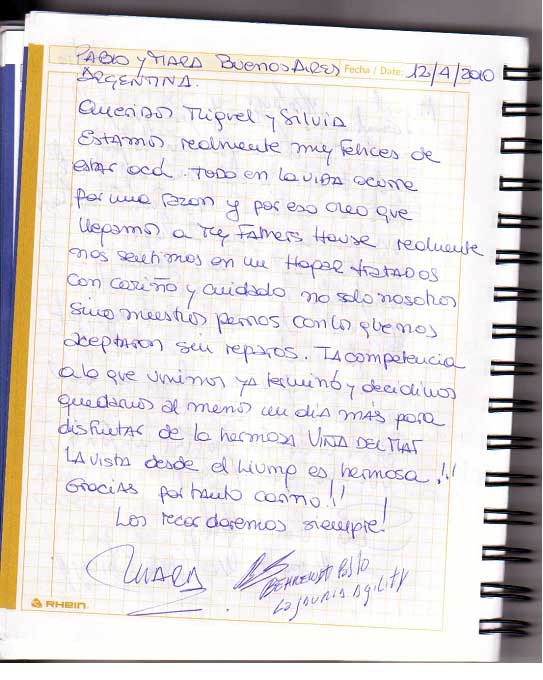 PABLO Y MARA BUENOS AIRES Fecha / Date: 12/4/2010
ARGENTINA.
Queridos Miguel y Silvia
Estamos realmente muy felices de
estar acá. Todo en la vida ocurre
por una razon y por eso creo que
llegamos a My Fathers House realmente
nos sentimos en un Hogar tratados
con cariño y cuidado no solo nosotros
sino nuestros perros con los que nos
aceptaron sin reparos. La competencia
a lo que vinimos ya terminó y decidimos
quedarnos al menos un dia más para
disfrutar de la hermosa VIÑA DEL MAR
La vista desde el living es hermosa!!
Gracias por tanto cariño!!
Los recordaremos siempre!
MARA
Pablo
La Jauria Agility
RHEIN